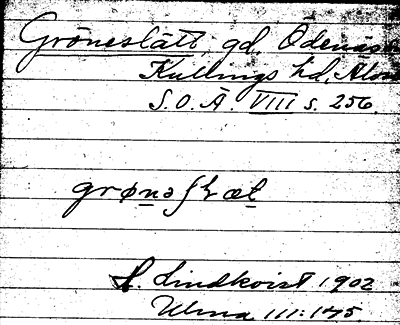 Gröneslätt, gd, Ödenäs
Kullings hd, Älvs
S.O.Ä. VIII s. 256.
S. Lindkvist 1902
Ulma 111:175.